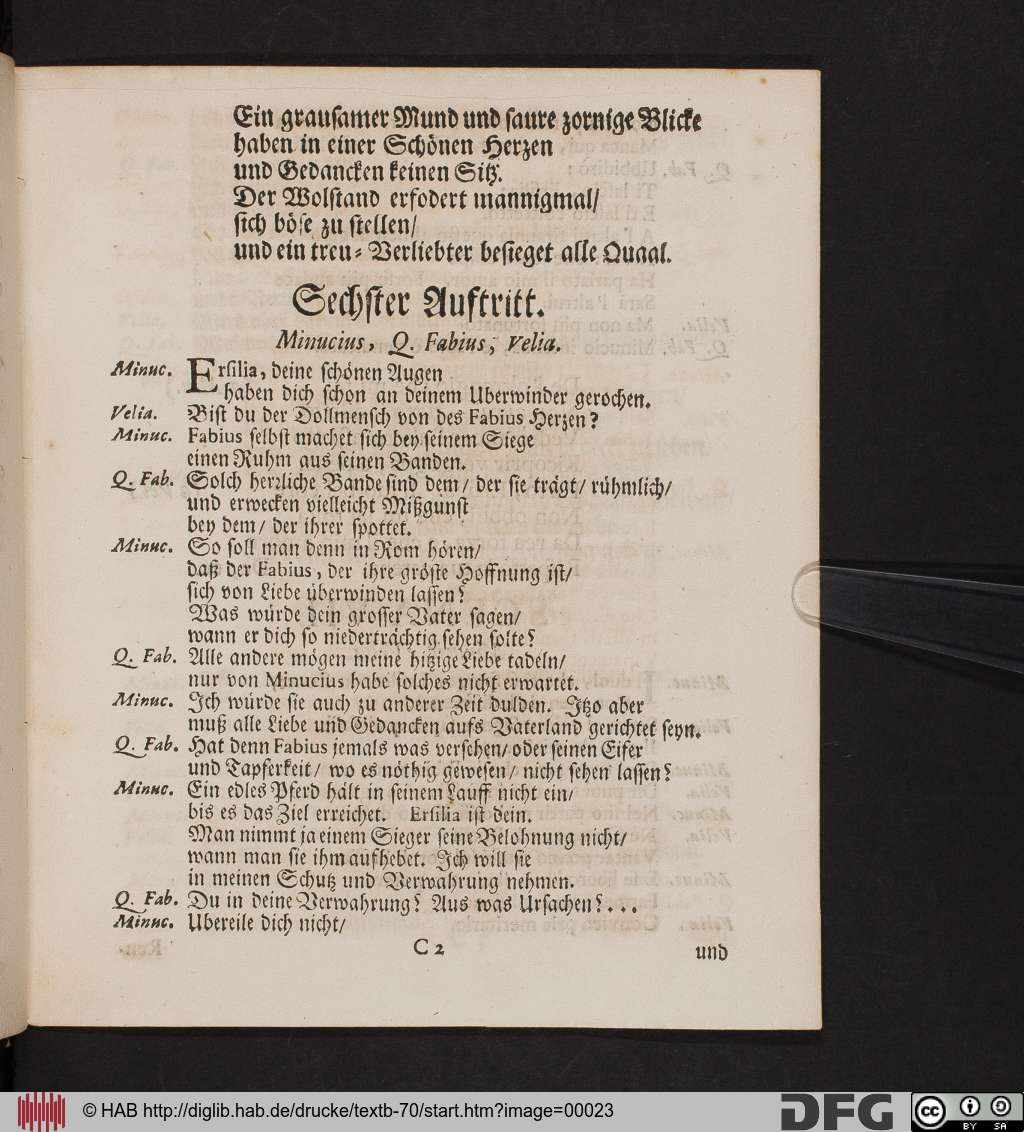 Ein grausamer Mund und saure zornige Blicke
haben in einer Schönen Herzen
und Gedancken keinen Sitz.
Der Wolstand erfodert mannigmal/
sich böse zu stellen/
und ein treu-Verliebter besieget alle Quaal.
Sechster Auftritt.
Minucius, Q. Fabius, Velia.
Minuc. Ersilia, deine schönen Augen
haben dich schon an deinem Uberwinder gerochen.
Velia. Bist du der Dollmensch von des Fabius Herzen?
Minuc. Fabius selbst machet sich bey seinem Siege
einen Ruhm aus seinen Banden.
Q. Fab. Solch herrliche Bande sind dem/ der sie trägt/ rühmlich/
und erwecken vielleicht Mißgunst
bey dem/ der ihrer spottet.
Minuc. So soll man denn in Rom hören/
daß der Fabius, der ihre gröste Hoffnung ist/
sich von Liebe überwinden lassen?
Was würde dein grosser Vater sagen/
wann er dich so niederträchtig sehen solte?
Q. Fab. Alle andere mögen meine hitzige Liebe tadeln/
nur von Minucius habe solches nicht erwartet.
Minuc. Ich würde sie auch zu anderer Zeit dulden. Itzo aber
muß alle Liebe und Gedancken aufs Vaterland gerichtet seyn.
Q. Fab. Hat denn Fabius jemals was versehen/ oder seinen Eifer
und Tapferkeit/ wo es nöthig gewesen/ nicht sehen lassen?
Minuc. Ein edles Pferd hält in seinem Lauff nicht ein/
bis es das Ziel erreichet. Ersilia ist dein.
Man nimmt ja einem Sieger seine Belohnung nicht/
wann man sie ihm aufhebet. Ich will sie
in meinen Schutz und Verwahrung nehmen.
Q. Fab. Du in deine Verwahrung? Aus was Ursachen?...
Minuc. Ubereile dich nicht/
C 2
und
© HAB http://diglib.hab.de/drucke/textb-70/start.htm?image=00023
DFG
cc
BY SA